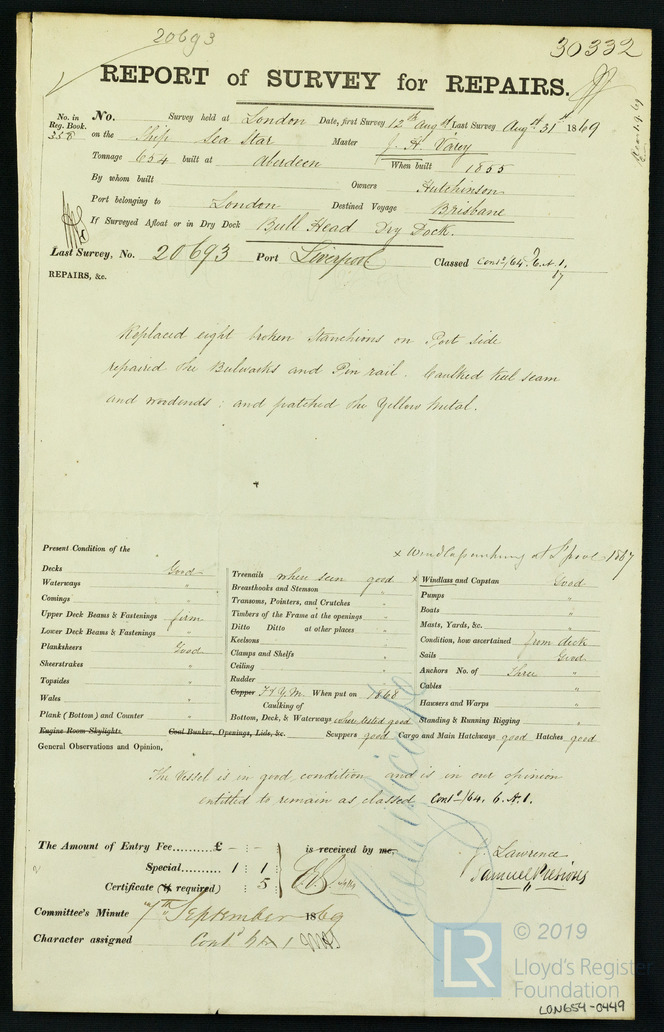 20693
30332
REPORT of SURVEY for REPAIRS.
No. in Reg. Book. 358
No. Survey held at London Date, first Survey 12th Augst Last Survey Augst 31st 1869
on the Ship Sea Star Master J. H. Varey
Tonnage 654 built at Aberdeen When built 1855
By whom built Owners Hutchinson
Port belonging to London Destined Voyage Brisbane
If Surveyed Afloat or in Dry Dock Bull Head Dry Dock.
Last Survey, No. 20693 Port Liverpool Classed Contd/64. 6.A.1.
REPAIRS, &c. 17
Replaced eight broken Stanchions on Port side
repaired the Bulwarks and Pin rail. Caulked Keel seam
and woodends: and patched the Yellow Metal.
Present Condition of the
x Windlass 1867
Decks Good
Waterways "
Comings "
Upper Deck Beams & Fastenings firm
Lower Deck Beams & Fastenings "
Planksheers Good
Sheerstrakes "
Topsides "
Wales "
Plank (Bottom) and Counter "
Engine Room Skylights
Treenails where seen good
Breasthooks and Stemson "
Transoms, Pointers, and Crutches "
Timbers of the Frame at the openings "
Ditto Ditto at other places "
Keelsons "
Clamps and Shelfs "
Ceiling "
Rudder "
Copper F.&Y.M. When put on 1868
Caulking of
Bottom, Deck, & Waterways where tested good
Coal Bunker, Openings, Lids, &c. Scuppers good
x Windlass and Capstan Good
Pumps "
Boats "
Masts, Yards, &c. "
Condition, how ascertained from deck
Sails Good
Anchors No. of Three "
Cables "
Hawsers and Warps "
Standing & Running Rigging "
Cargo and Main Hatchways good Hatches good
General Observations and Opinion,
The Vessel is in good condition and is in our opinion
entitled to remain as classed Contd/64. 6.A.1.
Certificate
The Amount of Entry Fee......... £ - : - : is received by me,
Special.......... 1 : 1
Certificate (if required) : 5
J. Lawrence
Samuel Presious
Committee's Minute 7th September 1869
Character assigned Contd 6A1
LR © 2019
Lloyd's Register
Foundation
LON654-0449